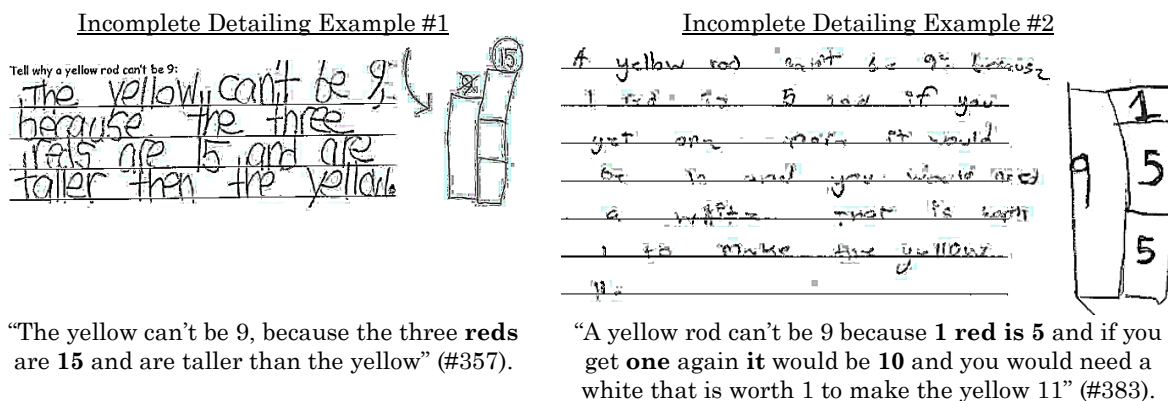 Incomplete Detailing Example #1
Tell why a yellow rod can't be 9:
The yellow can't be 9,
because the three
reds are 15 and are
taller then the yellow.
9
15
"The yellow can't be 9, because the three reds
are 15 and are taller than the yellow" (#357).
Incomplete Detailing Example #2
A yellow rod can't be 9 because
1 red is 5 and if you
get one more it would
be 10 and you would need
a white that is worth
1 to make the yellow
11.
9
1
5
5
"A yellow rod can't be 9 because 1 red is 5 and if you
get one again it would be 10 and you would need a
white that is worth 1 to make the yellow 11" (#383).